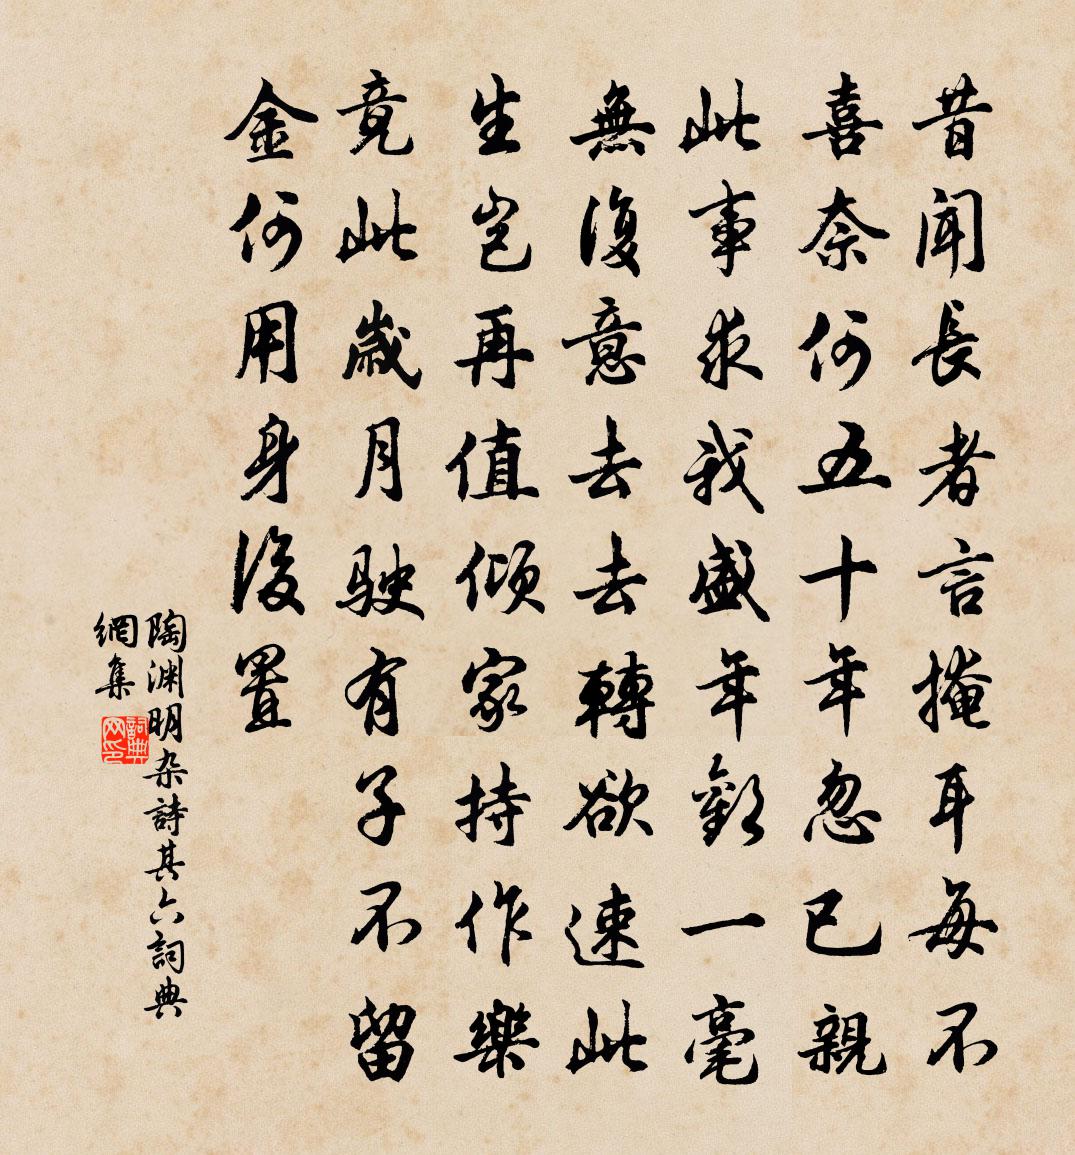 昔聞長者言掩耳每不
喜奈何五十年忽已親
此事求我盛年歡一毫
無復意去去轉欲速此
生豈再值傾家持作樂
竟此歲月駛有子不留
金何用身後置
陶淵明杂詩其六詞典
網集
詞典
网印